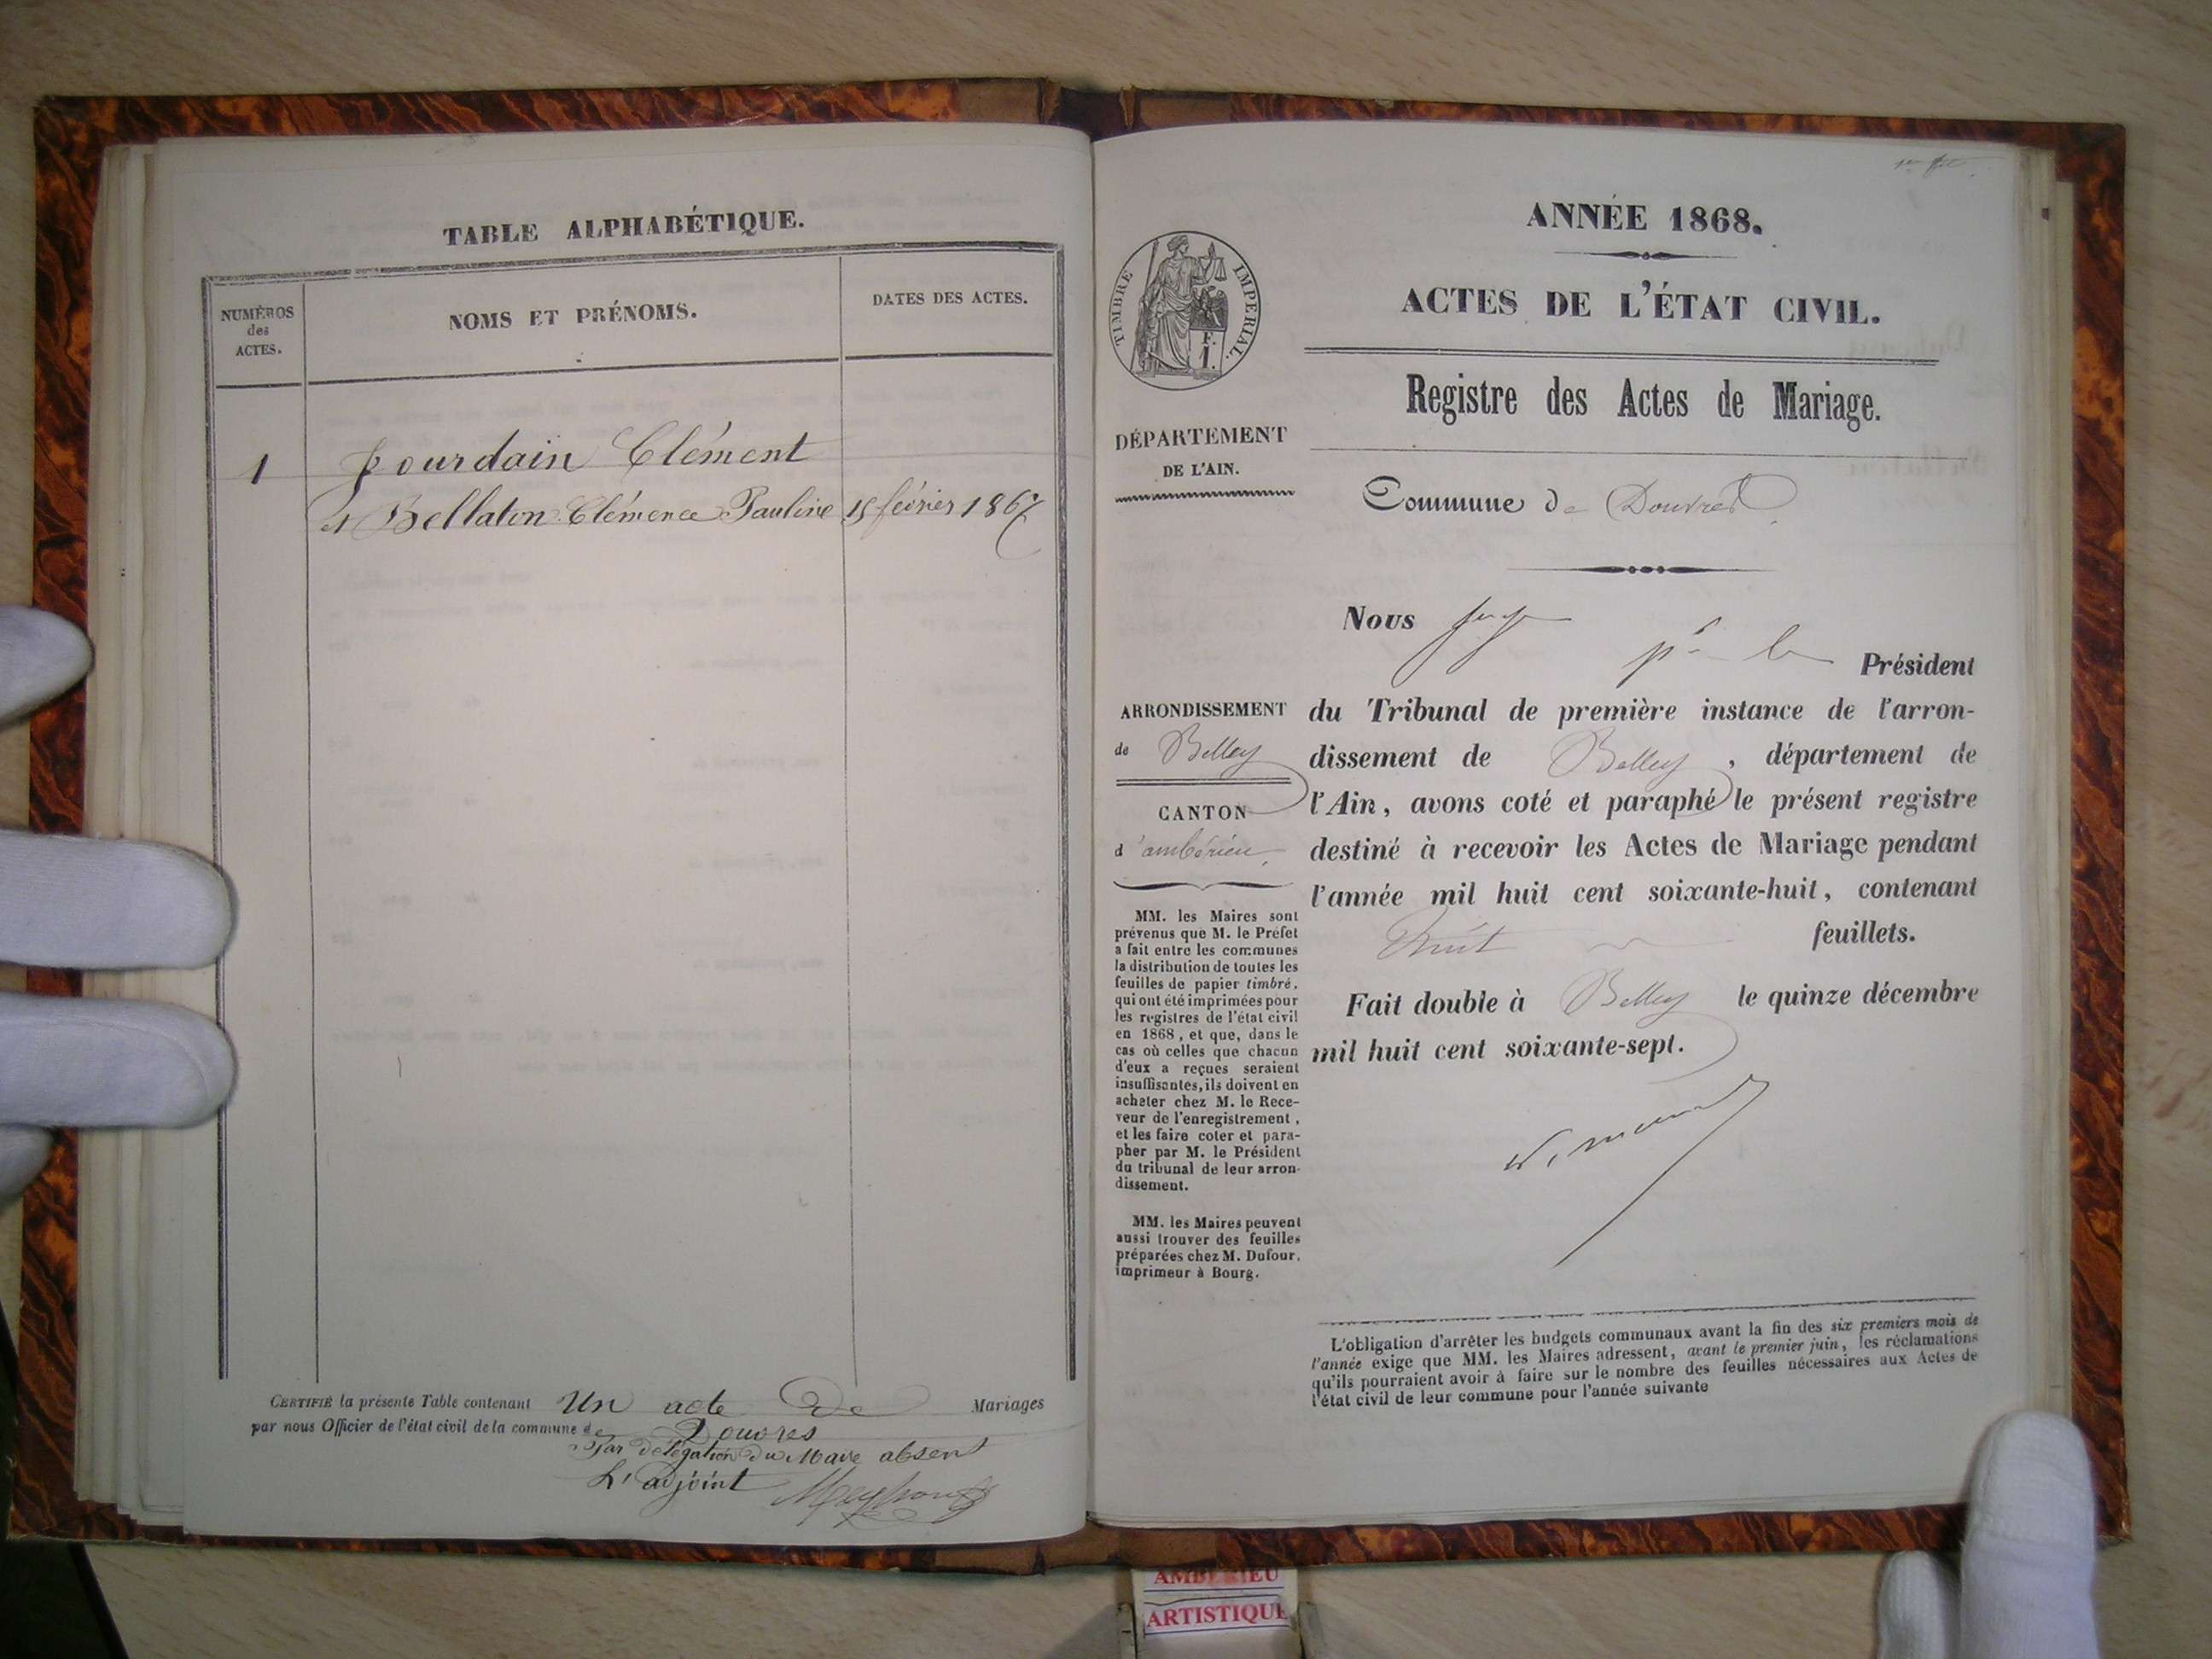 TABLE ALPHABÉTIQUE.
NUMÉROS
des
ACTES.
NOMS ET PRÉNOMS.
DATES DES ACTES.
1 Jourdain Clément
et Bellaton Clémence Pauline 15 février 1867
CERTIFIÉ la présente Table contenant Un acte de Mariages
par nous Officier de l'état civil de la commune de Douvres
Par délégation du Maire absent
L'adjoint
ANNÉE 1868.
ACTES DE L'ÉTAT CIVIL.
Registre des Actes de Mariage.
TIMBRE IMPERIAL.
F.
1.
DÉPARTEMENT
DE L'AIN.
Commune de Douvres
Nous juge
pr le Président
du Tribunal de première instance de l'arron-
dissement de Belley, département de
l'Ain, avons coté et paraphé le présent registre
destiné à recevoir les Actes de Mariage pendant
l'année mil huit cent soixante-huit, contenant
huit feuillets.
Fait double à Belley le quinze décembre
mil huit cent soixante-sept.
ARRONDISSEMENT
de Belley
CANTON
d'ambérieu
MM. les Maires sont
prévenus que M. le Préfet
a fait entre les communes
la distribution de toutes les
feuilles de papier timbré,
qui ont été imprimées pour
les registres de l'état civil
en 1868, et que, dans le
cas où celles que chacun
d'eux a reçues seraient
insuffisantes, ils doivent en
acheter chez M. le Rece-
veur de l'enregistrement,
et les faire coter et para-
pher par M. le Président
du tribunal de leur arron-
dissement.
MM. les Maires peuvent
aussi trouver des feuilles
préparées chez M. Dufour,
imprimeur à Bourg.
L'obligation d'arrêter les budgets communaux avant la fin des six premiers mois de
l'année exige que MM. les Maires adressent, avant le premier juin, les réclamations
qu'ils pourraient avoir à faire sur le nombre des feuilles nécessaires aux Actes de
l'état civil de leur commune pour l'année suivante
AMBERIEU
ARTISTIQUE